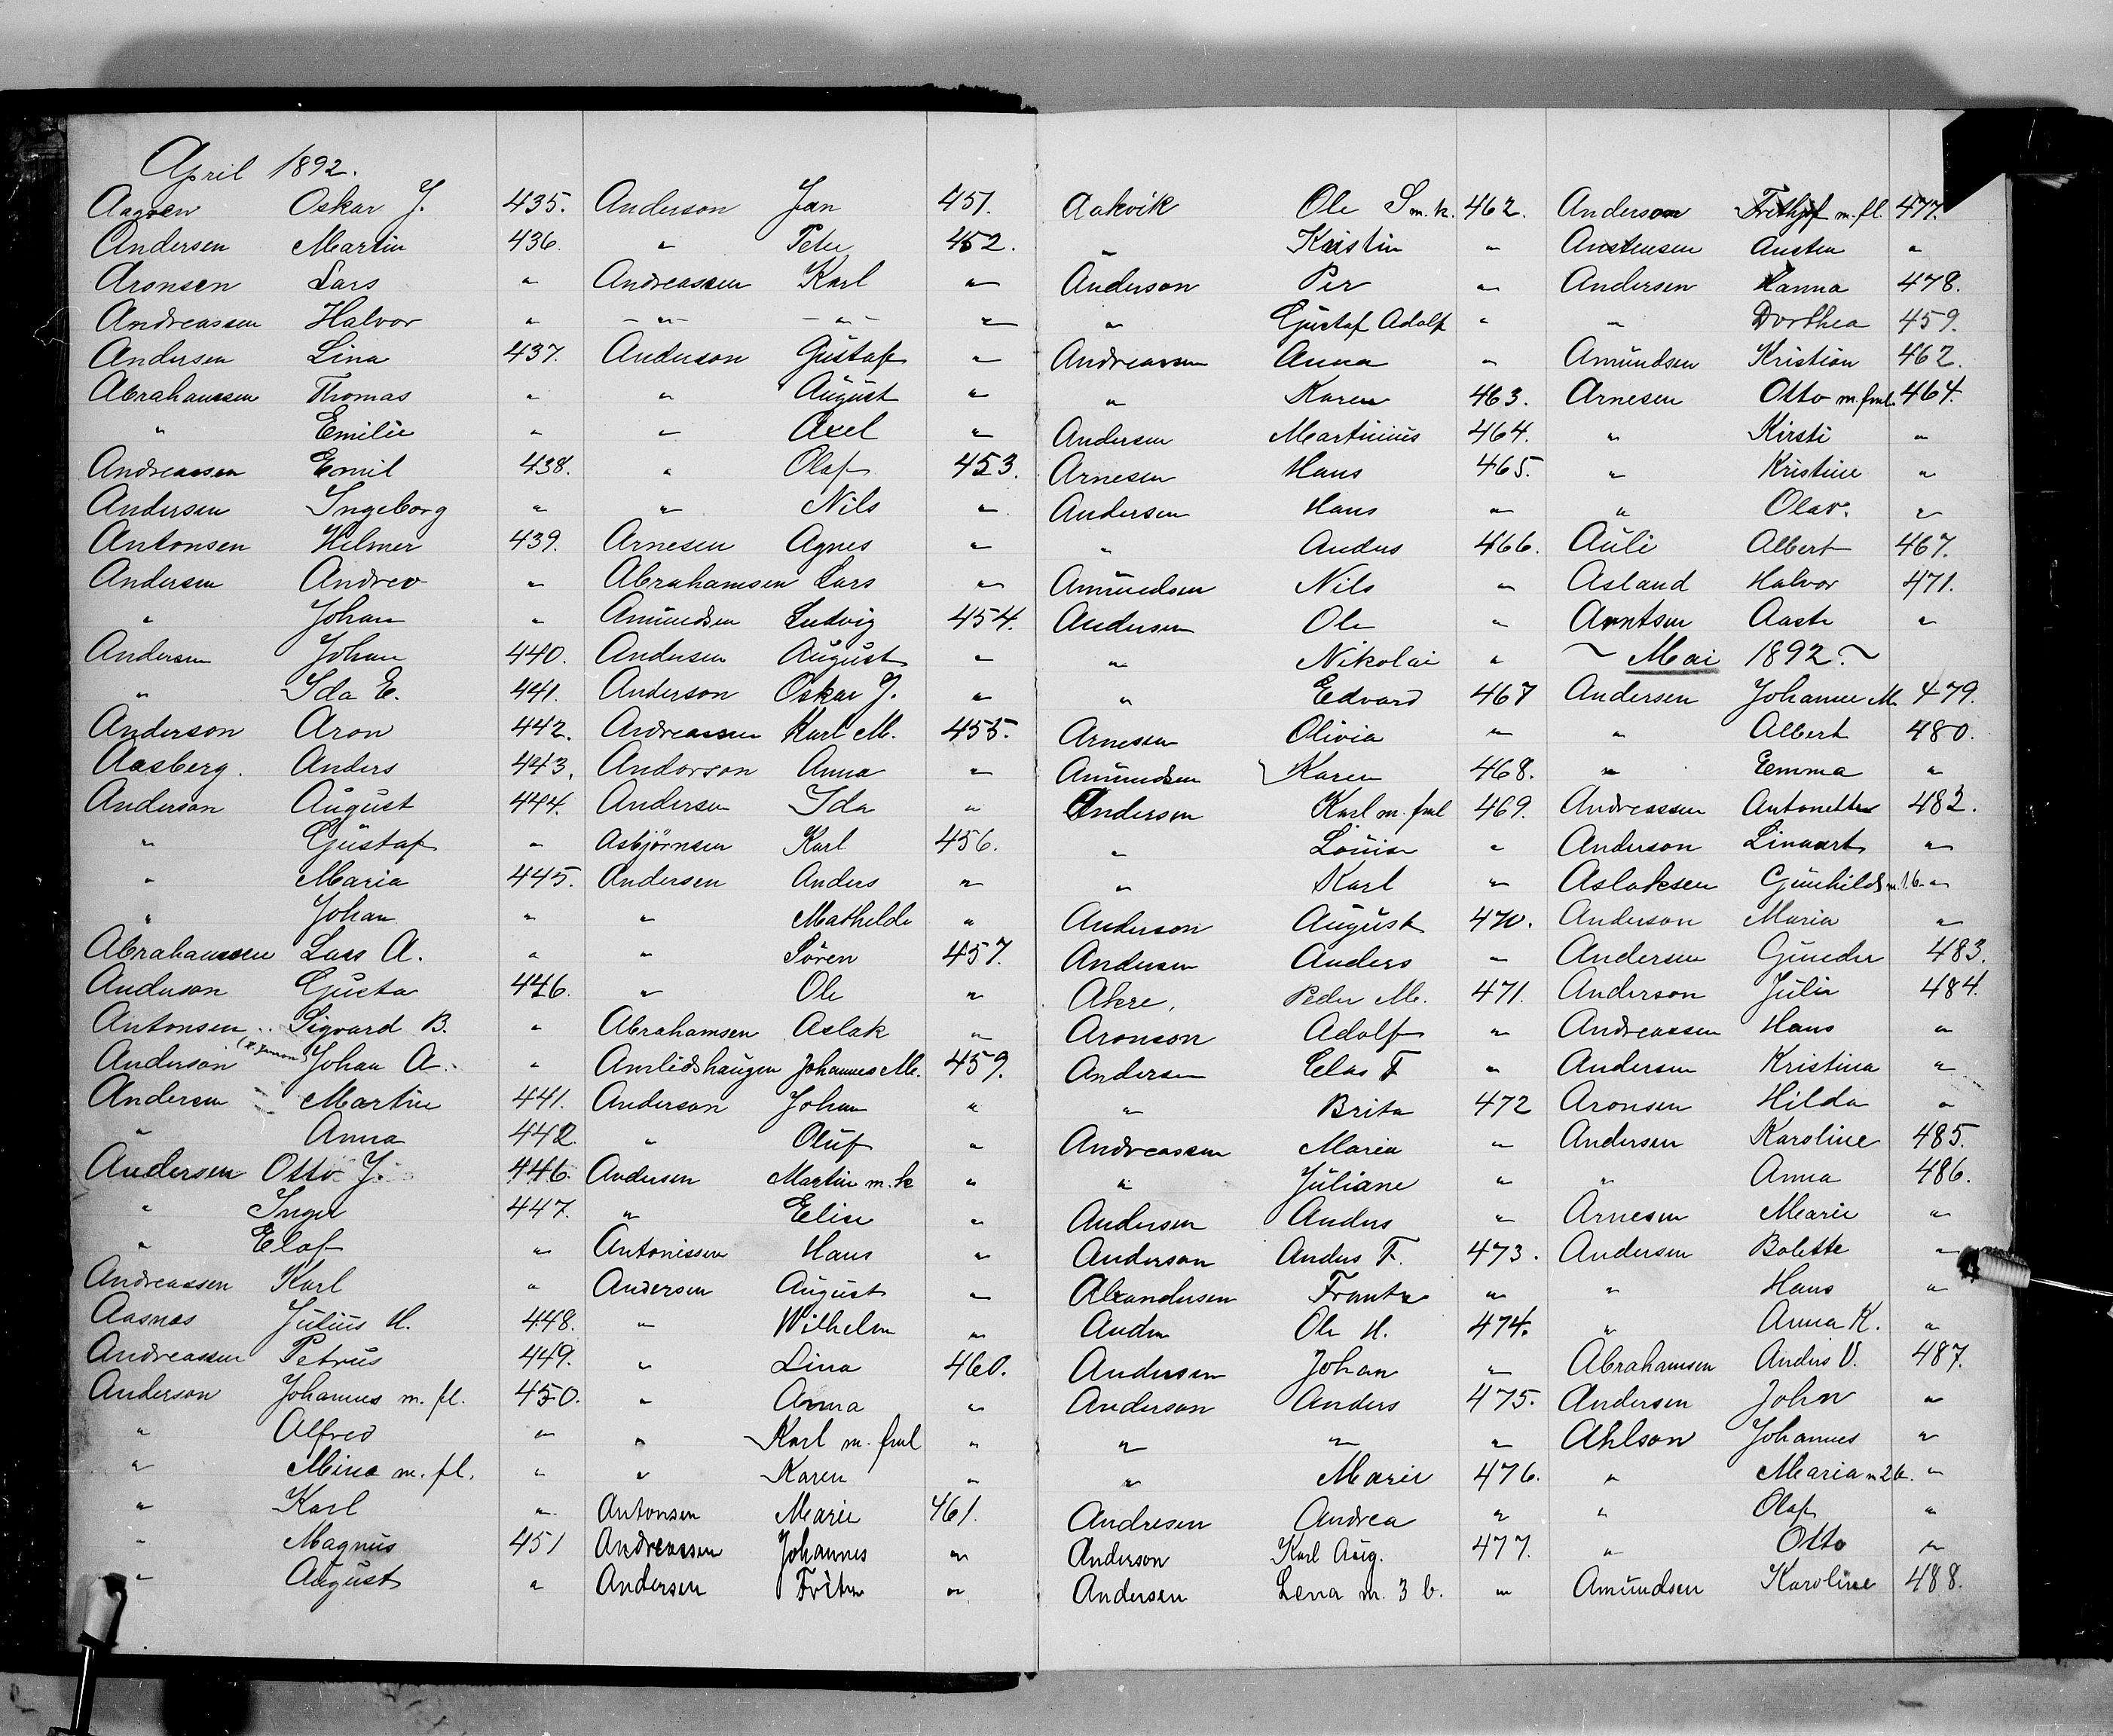 April 1892.
Aagren Oskar J. 435.
Andersen Martin 436.
Aronsen Lars "
Andreassen Halvor "
Andersen Lina 437.
Abrahamsen Thomas "
" Emilie "
Andreassen Emil 438.
Andersen Ingeborg "
Antonsen Hilmer 439.
Andersen Andrev "
" Johan "
Andersen Johan 440.
" Ida E. 441.
Anderson Aron 442.
Aasberg. Anders 443.
Anderson August 444.
" Gustaf "
" Maria 445.
" Johan "
Abrahamsen Lars A. "
Anderson Gusta 446.
Antonsen Sigvard B. "
Anderson Johan A. "
Andersen Martin 441.
" Anna 442.
Andersen Otto J. 446.
" Inger 447.
" Elof "
Andreassen Karl "
Aasnæs Julius H. 448.
Andreassen Petrus 449.
Anderson Johannes m. fl. 450.
" Alfred "
" Mina m. fl. "
" Karl "
" Magnus 451
" August "
Anderson Jan 451.
" Peter 452.
Andreassen Karl "
-"- -"- "
Anderson Gustaf "
" August "
" Axel "
" Olaf 453.
" Nils "
Arnesen Agnes "
Abrahamsen Lars "
Amundsen Ludvig 454.
Andersen August "
Anderson Oskar J. "
Andreassen Karl M. 455.
Anderson Anna "
Andersen Ida "
Asbjørnsen Karl 456.
Andersen Anders "
" Mathilde "
" Sören 457.
" Ole "
Abrahamsen Aslak "
Amlidshaugen Johannes M. 459.
Anderson Johan "
" Oluf "
Andersen Martin m. k "
" Elise "
Antonissen Hans "
Andersen August "
" Wilhelm "
" Lina 460.
" Anna "
" Karl m. fml "
" Karen "
Antonsen Marie 461.
Andreassen Johannes "
Andersen Fritz "
Aakvik Ole S m. k. 462.
" Kristin "
Anderson Per "
" Gustaf Adolf "
Andreassen Anna "
" Karen 463.
Andersen Martinius 464.
Arnesen Hans 465.
Andersen Hans "
" Anders 466.
Amundsen Nils "
Andersen Ole "
" Nikolai "
" Edvard 467
Arnesen Olivia "
Amundsen Karen 468.
Andersen Karl m. fml 469.
" Louise "
" Karl "
Anderson August 470.
Andersen Anders "
Akre, Peder M. 471.
Aronson Adolf "
Andersen Elas F "
" Brita 472
Andreassen Maria "
" Juliane "
Andersen Anders "
Anderson Andus F. 473.
Alexandersen Frantz "
Auden Ole H. 474.
Andersen Johan "
Anderson Anders 475.
" " "
" Marie 476.
Andresen Andrea "
Anderson Karl Aug. 477.
Andersen Lena m. 3 b. "
Anderson Frithjof m. fl. 477.
Austensen Austen "
Andersen Hanna 478.
" Dorthea 459.
Amundsen Kristian 462.
Arnesen Otto m. fml. 464.
" Kirsti "
" Kristine "
" Olav. "
Auli Albert 467.
Asland Halvor 471.
Arntsen Aaste "
~ Mai 1892. ~
Andersen Johanne M. 479.
" Albert 480.
" Emma "
Andreassen Antonette 482.
Anderson Linaart "
Aslaksen Gunhild m. 1. b. "
Anderson Maria "
Andersen Gunder 483.
Anderson Julia 484.
Andreassen Hans "
Andersen Kristina "
Aronsen Hilda "
Andersen Karoline 485.
" Anna 486.
Arnesen Marie "
Andersen Bolette "
" Hans "
" Anna K. "
Abrahamsen Anders O. 487.
Andersen John "
Ahlson Johannes "
" Maria m 2 b. "
" Olaf "
" Otto "
Amundsen Karoline 488.